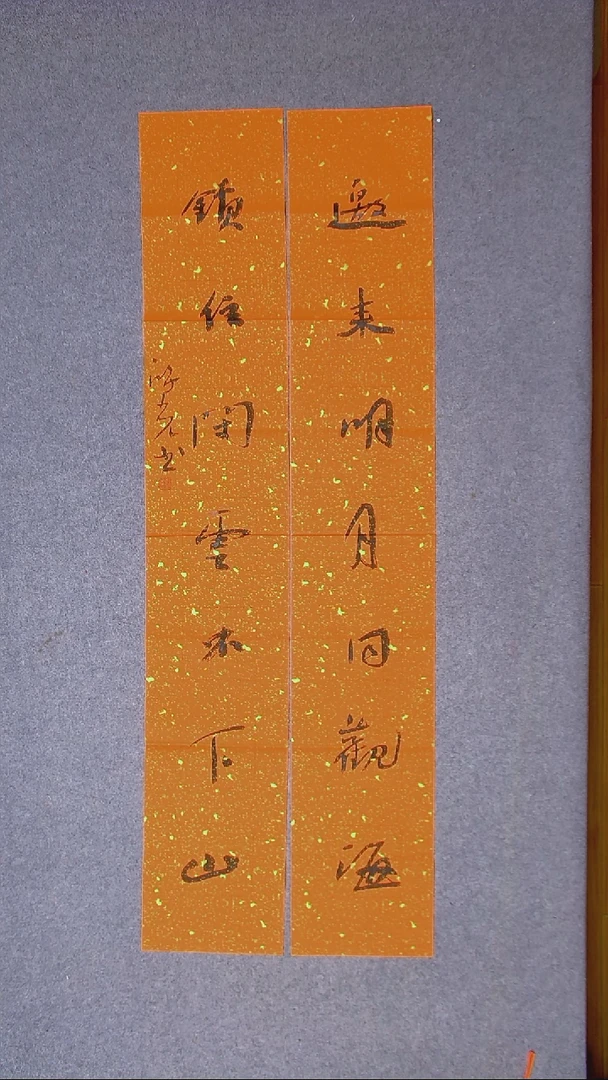 邀来明月同觀海
鎖住閑雲不下山